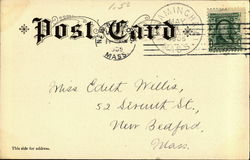 1.50
Post Card
MASS.
Miss Edith Willis,
52 Seventh St.,
New Bedford,
Mass.
This side for address.